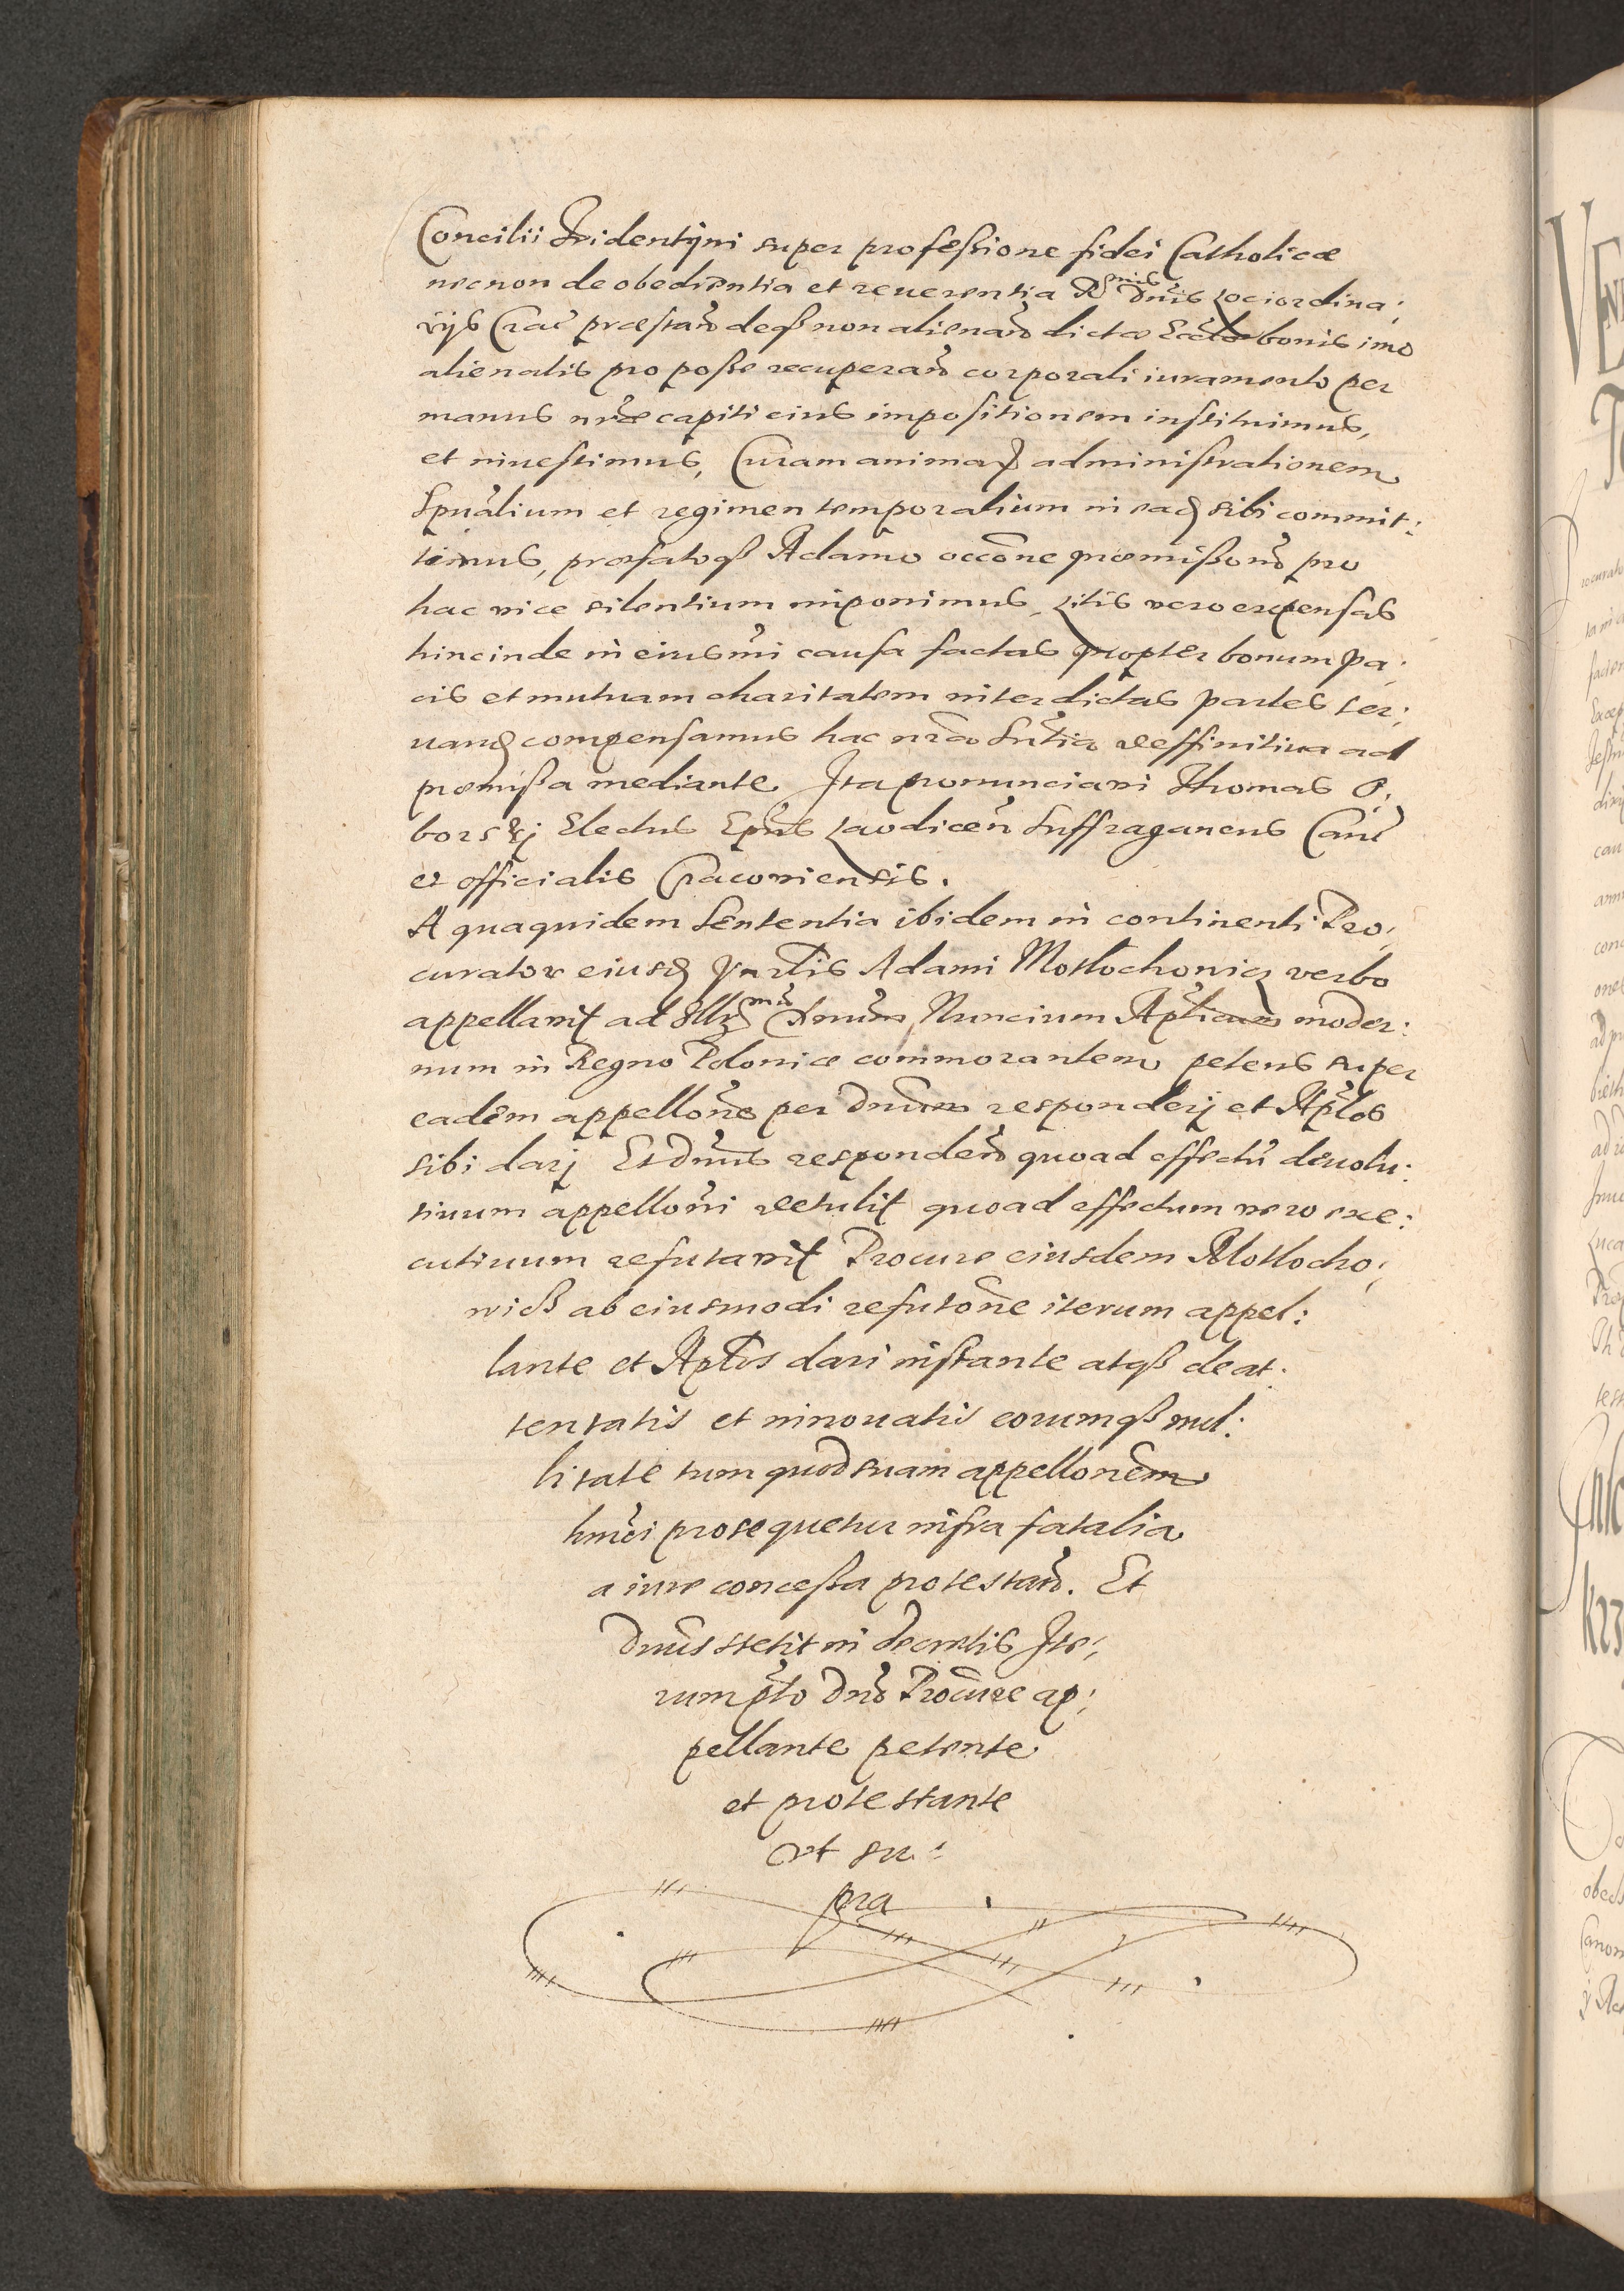 Concilii Tridentijni super profeßione fidei Catholicæ
necnon de obedientia et reuerentia R^mis Dnis Lociordina:
rijs Crac̃ præstañ deqß non alienañ dictæ Eccłæ bonis imo
alienatis pro poße recuperañ corporali iuramento per
manus nr̃æ capiti eius impositionem instituimus,
et inuestimus, Curam animaꝝ administrationem
Spũalium et regimen temporalium in eadꝫ sibi commit:
timus, præfatoqß Adamo occõne præmißorũ pro
hac vice silentium imponimus, Litis vero expensas
hincinde in eiusmõi causa factas propter bonum pa:
cis et mutuam charitatem inter dictas partes ser:
uandꝫ compensamus hac nr̃a Sñtia deffinitiua ad
præmißa mediante Ita pronunciaui Thomas O:
borsκj Electus Epũs Laodiceñ Suffraganeus Cañc
et officialis Cracouiensis.
A quaquidem Sententia ibidem in continenti Pro:
curator eiusdꝫ partis Adami Mostochouicz verbo
appellauit ad Illr^mũ Dnũm Nuncium Apłicum moder:
num in Regno Poloniæ commorantem petens super
eadem appellõne per Dnũm responderj et Apłos
sibi darj Et Dnũs respondeñ quoad effectũ deuolu:
tiuum appellõni detulit quoad effectum vero exe:
cutiuum refutauit Procure eiusdem Mostocho:
wicß ab eiusmodi refutõne iterum appel:
lante et Apłos dari instante atqß de at:
tentatis et innouatis eorumqß nul:
litate tum quod suam appellonẽm
hmõi prosequetur infra fatalia
a iure conceßa protestañ. Et
Dnũs stetit in decretis Ite:
rum pt̃o Dnõ Procũre ap:
pellante petente
et protestante
vt su:
pra